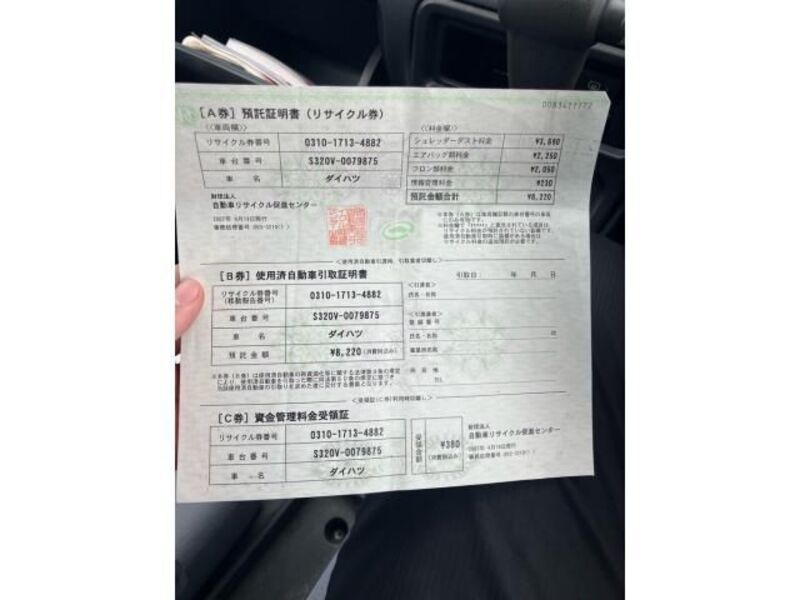 0083477772
[A券] 預託証明書（リサイクル券）
《車両欄》
リサイクル券番号 0310-1713-4882
車台番号 S320V-0079875
車名 ダイハツ
《料金欄》
シュレッダーダスト料金 ¥3,690
エアバッグ類料金 ¥2,250
フロン類料金 ¥2,050
情報管理料金 ¥230
預託金額合計 ¥8,220
財団法人
自動車リサイクル促進センター
＜使用済自動車引渡時、引取業者切離し＞
[B券] 使用済自動車引取証明書
引取日： 年 月 日
リサイクル券番号
(移動報告番号) 0310-1713-4882
車台番号 S320V-0079875
車名 ダイハツ
預託金額 ¥8,220(消費税込み)
＜引渡者＞
氏名・名称
＜引取業者＞
登録番号
氏名・名称 印
事業所名称
所在地
TEL
[C券] 資金管理料金受領証
リサイクル券番号 0310-1713-4882
車台番号 S320V-0079875
車名 ダイハツ
受領金額 ¥380
(消費税込み)
財団法人
自動車リサイクル促進センター